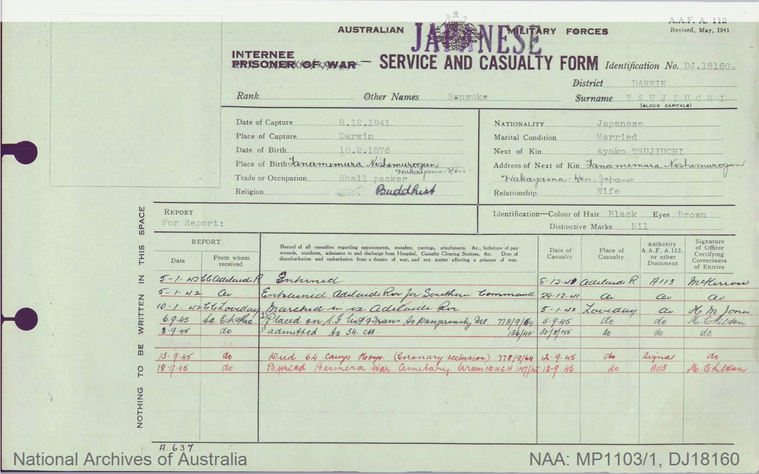 A.A.F. A. 112
Revised, May, 1941
AUSTRALIAN MILITARY FORCES
JAPANESE
INTERNEE
PRISONER OF WAR — SERVICE AND CASUALTY FORM Identification No. DJ.18160.
District DARWIN
Rank Other Names Sansuke Surname TSUJIUCHI
(BLOCK CAPITALS)
Date of Capture 8.12.1941
Place of Capture Darwin
Date of Birth 10.2.1876
Place of Birth Tanamimura Nishimurogun
Wakayama Ken
Trade or Occupation Shell packer
Religion Buddhist
NATIONALITY Japanese
Marital Condition Married
Next of Kin Ayoko TSUJIUCHI
Address of Next of Kin Tanamimura Nishimurogun
Wakayama Ken Japan
Relationship Wife
REPORT
For Report:
Identification—Colour of Hair Black Eyes Brown
Distinctive Marks Nil
NOTHING TO BE WRITTEN IN THIS SPACE
REPORT
Date From whom received
Record of all casualties regarding appointments, transfers, postings, attachments, &c., forfeiture of pay
wounds, accidents, admission to and discharge from Hospital, Casualty Clearing Stations, &c. Date of
disembarkation and embarkation from a theatre of war, and any matter affecting a prisoner of war.
Date of Casualty
Place of Casualty
Authority A.A.F. A. 113, or other Document
Signature of Officer Certifying Correctness of Entries
5-1-42 Adelaide R Interned 5-12-41 Adelaide R A113
5-1-42 do Entrained Adelaide Rvr for Southern Command 29-12-41 do do do
10-1-42 Loveday Marched in ex Adelaide Rvr 5-1-42 Loveday do H M Jones
6-9-45 Placed on S.I. List & Trans to Dangerously Ill 778/9/64 5-9-45 do do H Chilton
8-9-45 do admitted to 34. CH do do do
13-9-45 do Died 64 Camp Hosp. (Coronary occlusion) 778/9/64 12-9-45 do Signal do
18-9-45 do Buried Barmera War Cemetery 12-9-45 do A113 H Chilton
A.637
National Archives of Australia
NAA: MP1103/1, DJ18160